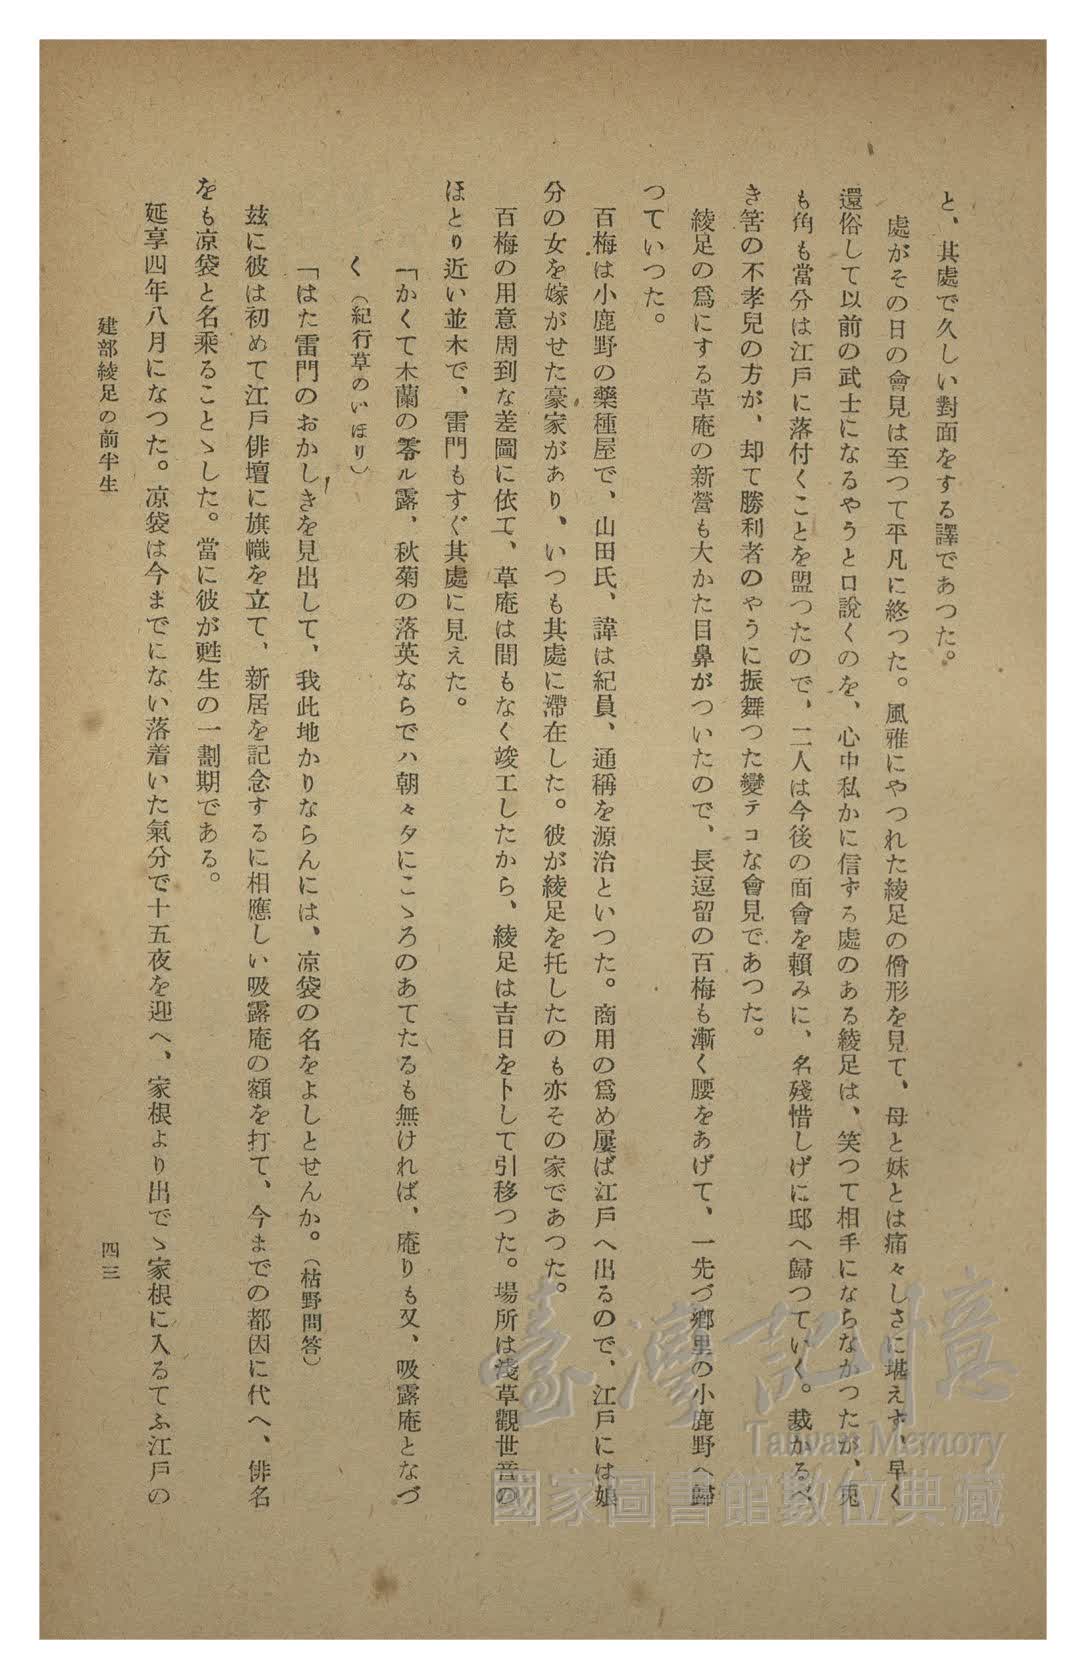 と、其處で久しい對面をする譯であつた。
處がその日の會見は至つて平凡に終つた。風雅にやつれた綾足の僧形を見て、母と妹とは痛々しさに堪えず、早く
還俗して以前の武士になるやうと口說くのを、心中私かに信ずる處のある綾足は、笑つて相手にならなかつたが、兎
も角も當分は江戸に落付くことを盟つたので、二人は今後の面會を賴みに、名殘惜しげに邸へ歸つていく。裁かるべ
き筈の不孝兒の方が、却て勝利者のやうに振舞つた變テコな會見であつた。
綾足の爲にする草庵の新營も大かた目鼻がついたので、長逗留の百梅も漸く腰をあげて、一先づ鄕里の小鹿野へ歸
つていつた。
百梅は小鹿野の藥種屋で、山田氏、諱は紀員、通稱を源治といつた。商用の爲め屢ば江戸へ出るので、江戸には娘
分の女を嫁がせた豪家があり、いつも其處に滯在した。彼が綾足を托したのも亦その家であつた。
百梅の用意周到な差圖に依て、草庵は間もなく竣工したから、綾足は吉日を卜して引移つた。場所は淺草觀世音の
ほとり近い並木で、雷門もすぐ其處に見えた。
「かくて木蘭の零ル露、秋菊の落英ならでハ朝々夕にこゝろのあてたるも無ければ、庵りも又、吸露庵となづ
く（紀行草のいほり）
「はた雷門のおかしきを見出して、我此地かりならんには、凉袋の名をよしとせんか。（枯野問答）
玆に彼は初めて江戸俳壇に旗幟を立て、新居を記念するに相應しい吸露庵の額を打て、今までの都因に代へ、俳名
をも凉袋と名乘ることゝした。當に彼が甦生の一劃期である。
延享四年八月になつた。凉袋は今までにない落着いた氣分で十五夜を迎へ、家根より出でゝ家根に入るてふ江戸の
建部綾足の前半生
四三
臺灣記憶
Taiwan Memory
國家圖書館數位典藏